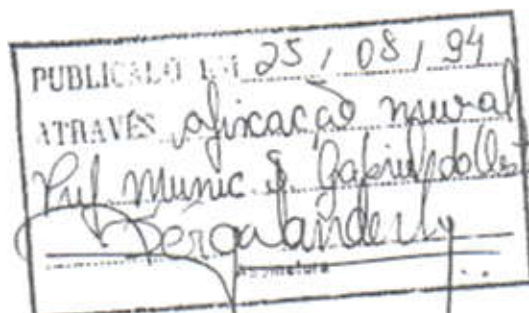 PUBLICADO EM 25 / 08 / 94
ATRAVÉS afixacção mural
Pref Munic S. Gabriel do Oest
Assinatura